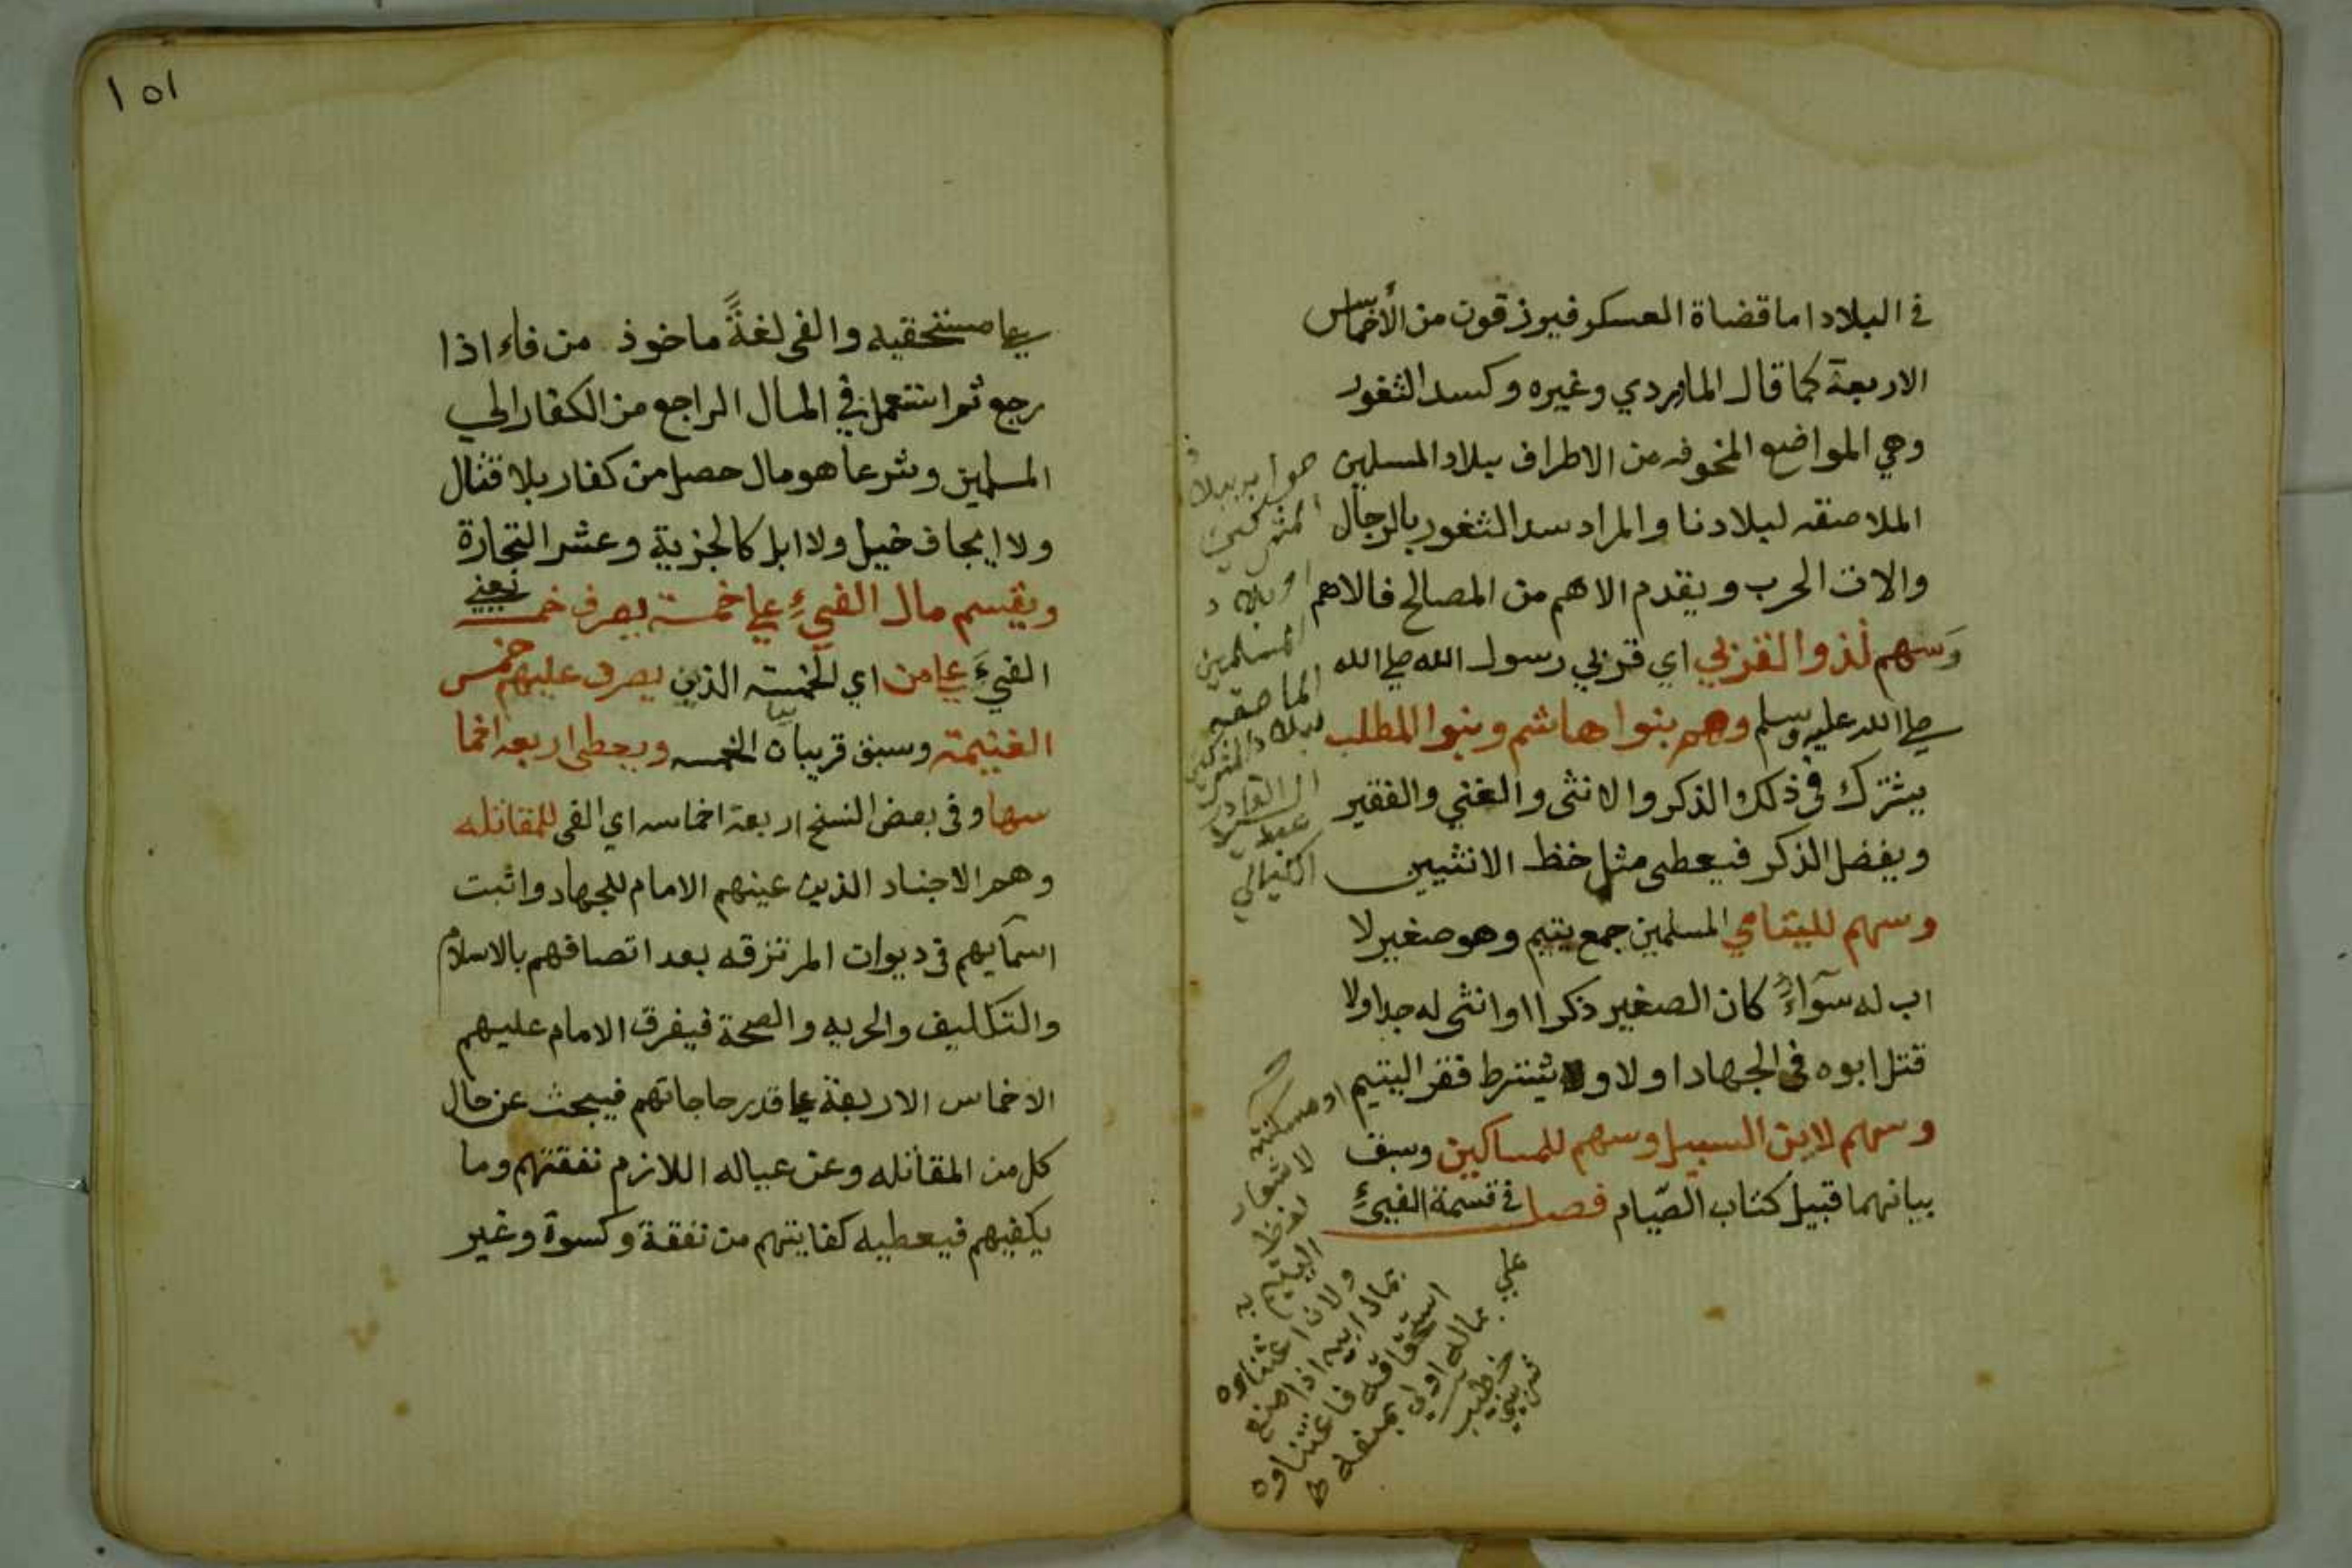 في البلاد اما قضاة العسكر فيرزقون من الأخماس
الاربعة كما قال الماوردي وغيره وكسد الثغور
وهي المواضع المخوفه من الاطراف ببلاد المسلمين
الملاصقه لبلادنا والمراد سد الثغور بالرجال
والات الحرب ويقدم الاهم من المصالح فالاهم
وسهم لذوا القربي اي قربي رسول الله صلي الله
صلي الله عليه وسلم وهم بنوا هاشم وبنوا المطلب
يشترك في ذلك الذكر والانثى والغني والفقير
ويفضل الذكر فيعطى مثل خظ الانثيين
وسهم لليتامي المسلمين جمع يتيم وهو صغير لا
اب له سوآءً كان الصغير ذكرا او انثى له جد اولا
قتل ابوه في الجهاد اولا و يشترط فقر اليتيم
وسهم لابن السبيل وسهم للمساكين وسبق
بيانهما قبيل كتاب الصّيام فصل في قسمة الفيئ
او بلاد
المسلمين
او مسكنته
لاشعار
لفظ
اليتيم به
ولان اغتناءه
بمال ابيه اذا منع
استحقاقه فاغتناوه
بماله اولي بمنعه
خطيب
شربيني
علي
١٥١
علي مستحقيه والفي لغةً ماخوذ من فاء اذا
رجع ثم استعمل في المال الراجع من الكفار الي
المسلمين وشرعا هو مال حصل من كفار بلا قتال
ولا ايجاف خيل ولا ابل كالجزية وعشر التجارة
ويقسم مال الفيءِ علي خمسة يصرف خمسه يعني
الفيءَ علي من اي الخمسة الذين يصرف عليهم خمس
الغنيمة وسبق قريبا بيان الخمسه ويعطي اربعه اخما
سها وفي بعض النسخ اربعة اخماسه اي الفي للمقاتله
وهم الاجناد الذين عينهم الامام للجهاد واثبت
اسمآيهم في ديوان المرتزقه بعد اتصافهم بالاسلام
والتكليف والحريه والصحة فيفرق الامام عليهم
الاخماس الاربعة علي قدر حاجاتهم فيبحث عن حال
كل من المقاتله وعن عياله اللازم نفقتهم وما
يكفيهم فيعطيه كفايتهم من نفقة وكسوة وغير